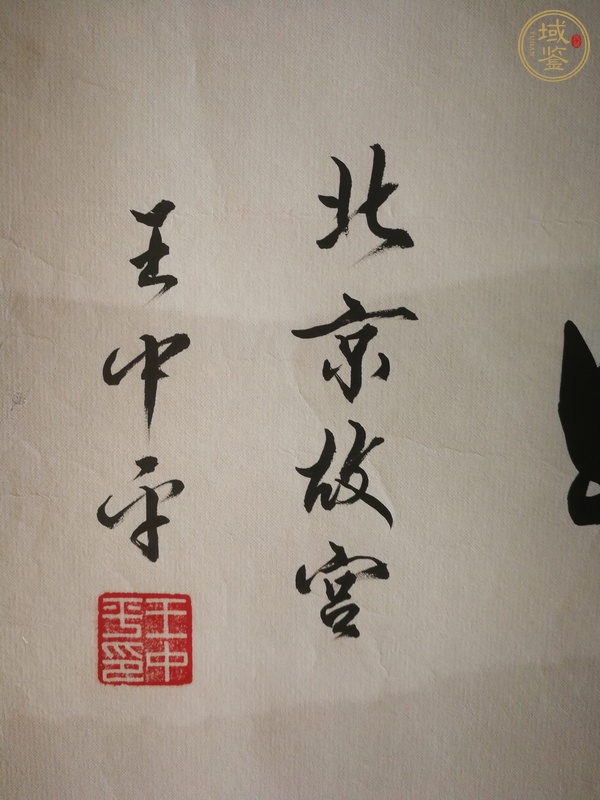 北京故宫
王中平
王中平印
域鉴
YUJIAN